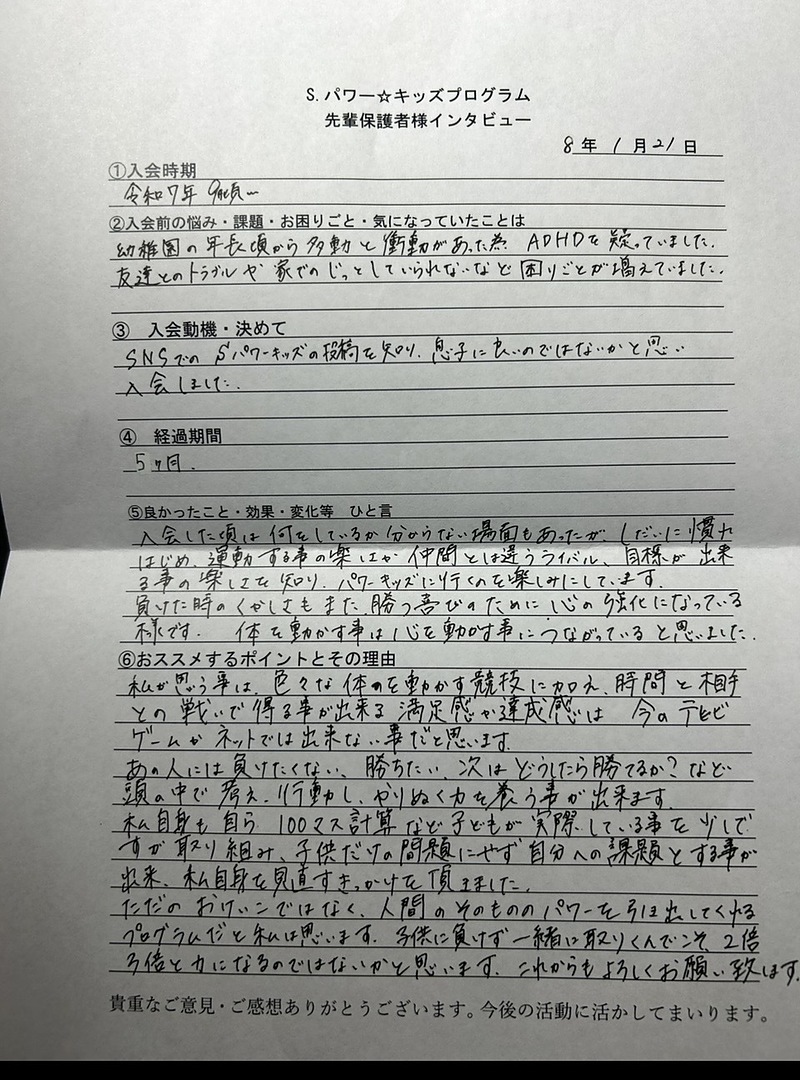 S.パワー☆キッズプログラム
先輩保護者様インタビュー
8年 1月21日
①入会時期
令和7年 9月頃〜
②入会前の悩み・課題・お困りごと・気になっていたことは
幼稚園の年長頃から多動と衝動があった為 ADHDを疑っていました.
友達とのトラブルや家でのじっとしていられないなど困りごとが増えていました.
③ 入会動機・決めて
SNSでのSパワーキッズの投稿を知り、息子に良いのではないかと思い
入会しました.
④ 経過期間
5ヶ月.
⑤良かったこと・効果・変化等 ひと言
入会した頃は何をしているか分からない場面もあったが、しだいに慣れ
はじめ、運動する事の楽しさや仲間とは違うライバル、目標が出来
る事の楽しさを知り、パワーキッズに行くのを楽しみにしています.
負けた時のくやしさもまた勝つ喜びのために心の強化になっている
様です. 体を動かす事は心を動かす事につながっていると思いました.
⑥おススメするポイントとその理由
私が思う事は、色々な体のを動かす競技に加え、時間と相手
との戦いで得る事が出来る満足感や達成感は 今のテレビ
ゲームやネットでは出来ない事だと思います.
あの人には負けたくない、勝ちたい、次はどうしたら勝てるか?など
頭の中で考え、行動し、やりぬく力を養う事が出来ます.
私自身も自ら 100マス計算など子どもが実際している事を少しで
すが取り組み、子供だけの問題にせず自分への課題とする事が
出来、私自身を見直すきっかけを頂きました.
ただのおけいこではなく、人間のそのもののパワーを引き出してくれる
プログラムだと私は思います. 子供に負けず一緒に取りくんでこそ 2倍
3倍と力になるのではないかと思います. これからもよろしくお願い致します.
貴重なご意見・ご感想ありがとうございます。今後の活動に活かしてまいります。